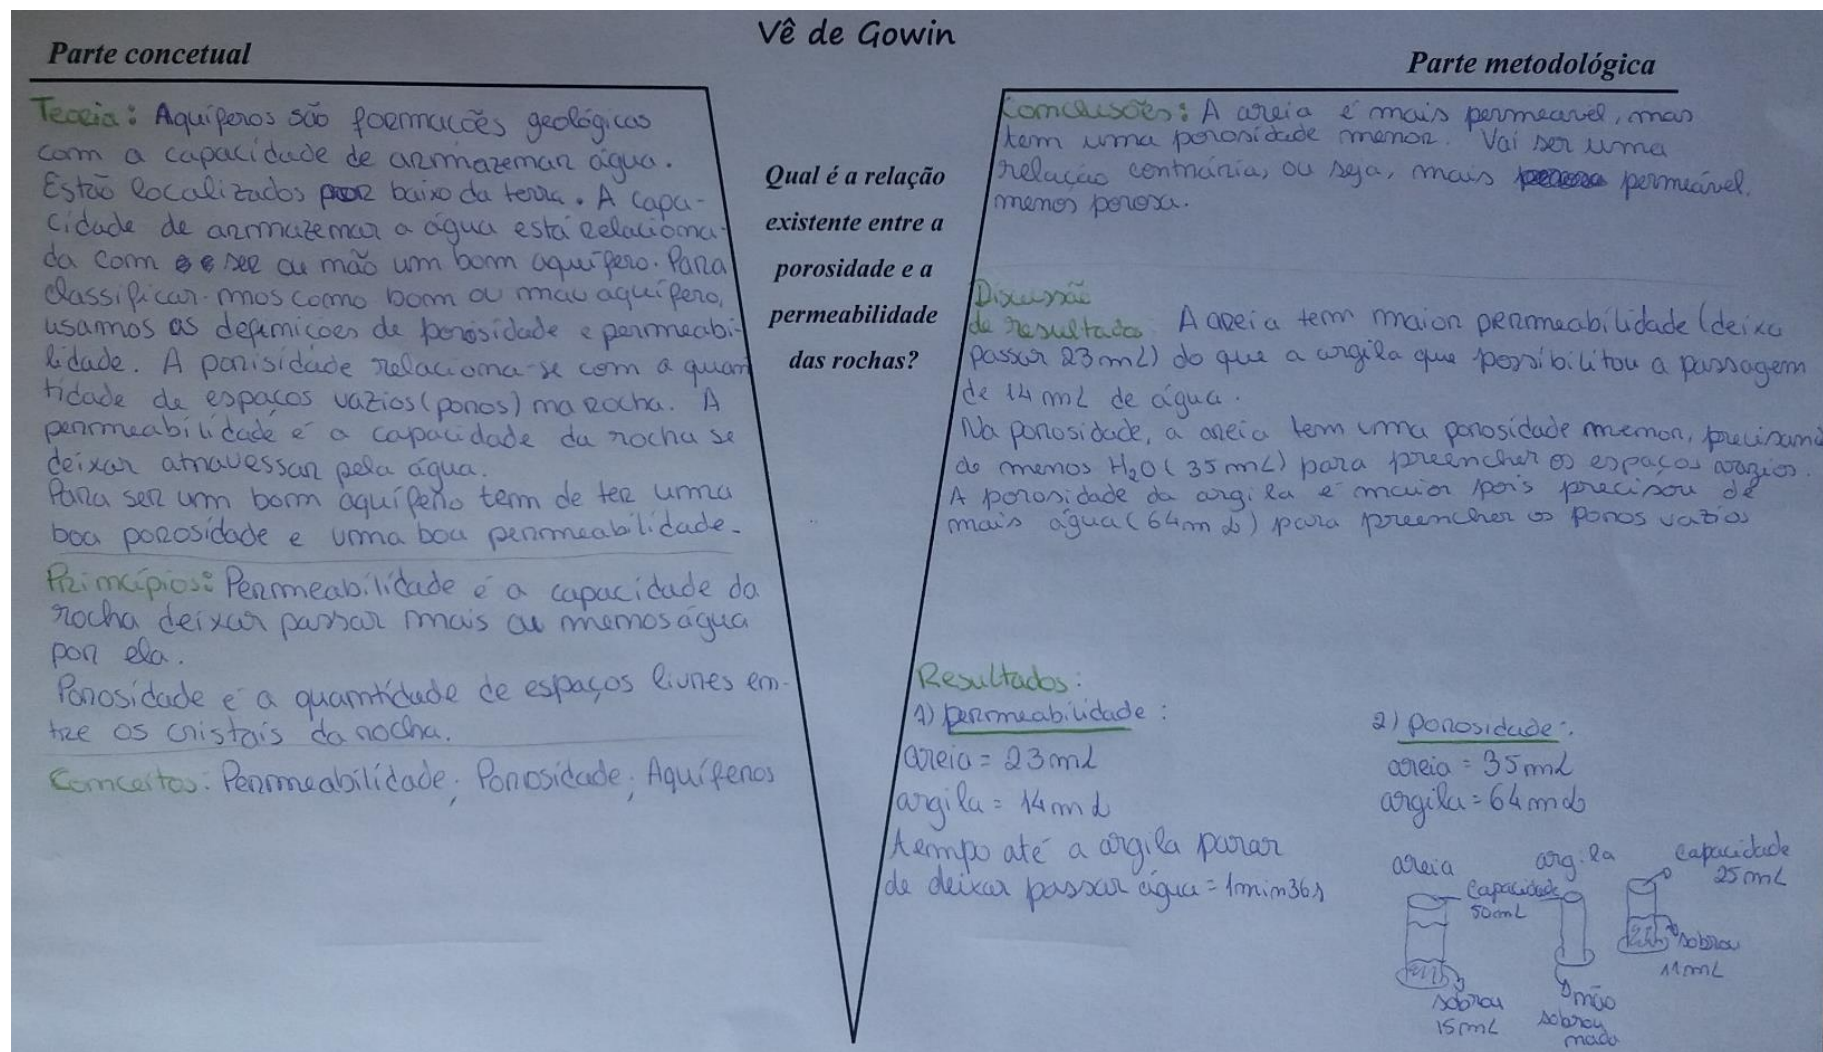 Vê de Gowin
Parte concetual
Teoria: Aquíferos são formações geológicas
com a capacidade de armazenar água.
Estão localizados por baixo da terra. A capa-
cidade de armazenar a água está relaciona-
da com o ser ou não um bom aquífero. Para
classificar-mos como bom ou mau aquífero,
usamos as definições de porosidade e permeabi-
lidade. A porisidade relaciona-se com a quan
tidade de espaços vazios (poros) na rocha. A
permeabilidade é a capacidade da rocha se
deixar atravessar pela água.
Para ser um bom aquífero tem de ter uma
boa porosidade e uma boa permeabilidade.
Princípios: Permeabilidade é a capacidade da
rocha deixar passar mais ou menos água
por ela.
Porosidade é a quantidade de espaços livres en-
tre os cristais da rocha.
Conceitos: Permeabilidade; Porosidade; Aquíferos
Qual é a relação
existente entre a
porosidade e a
permeabilidade
das rochas?
Parte metodológica
Conclusões: A areia é mais permeável, mas
tem uma porosidade menor. Vai ser uma
relação contrária, ou seja, mais permeável,
menos porosa.
Discussão
de resultados A areia tem maior permeabilidade (deixa
passar 23 mL) do que a argila que possibilitou a passagem
de 14 mL de água.
Na porosidade, a areia tem uma porosidade menor, precisan
do menos H₂O (35 mL) para preencher os espaços vazios.
A porosidade da argila é maior pois precisou de
mais água (64 mL) para preencher os poros vazios
Resultados:
1) permeabilidade:
areia = 23 mL
argila = 14 mL
tempo até a argila parar
de deixar passar água = 1min36s
2) porosidade:
areia = 35 mL
argila = 64 mL
areia
argila
capacidade
25 mL
capacidade
50 mL
sobrou
15 mL
não
sobrou
nada
sobrou
11 mL